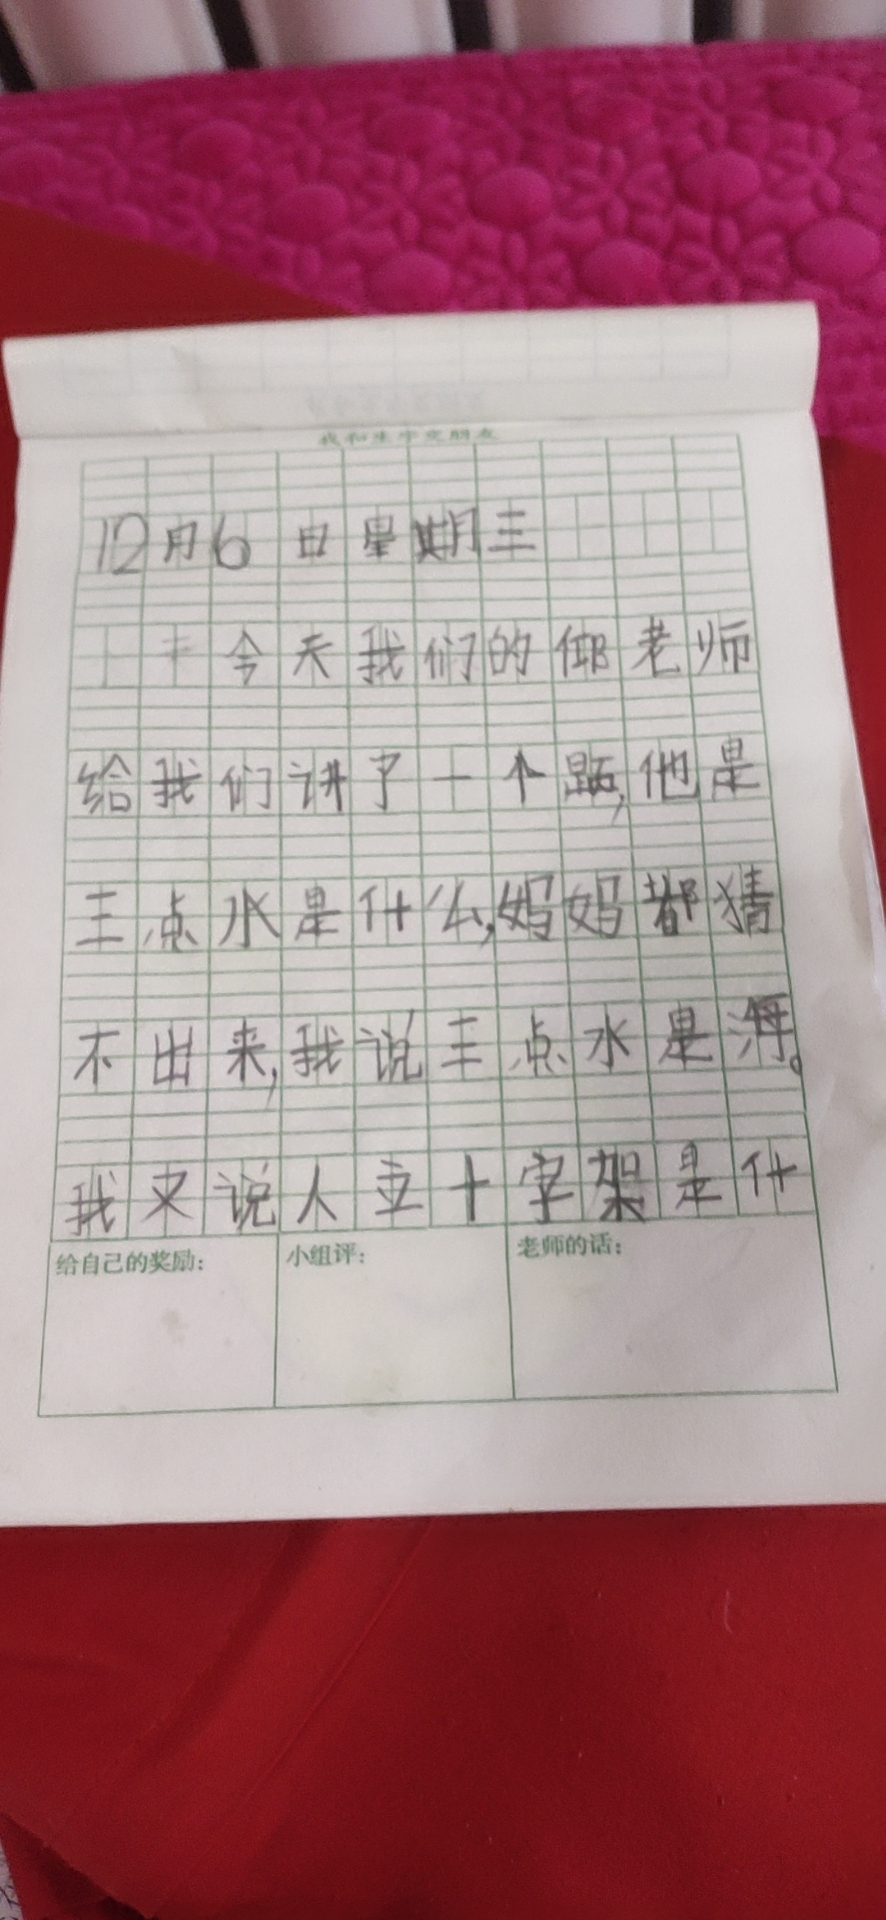 我和生字交朋友
12月6日星期三
今天我们的邸老师
给我们讲了一个题,他是
三点水是什么,妈妈都猜
不出来,我说三点水是海。
我来说人立十字架是什
给自己的奖励: 小组评: 老师的话: